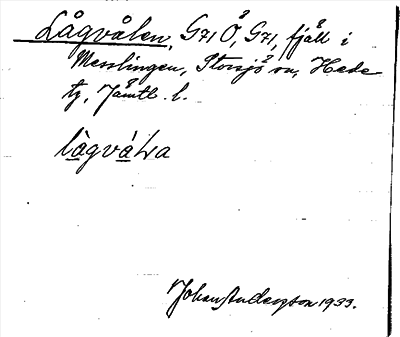 Lågvålen, G71 Ö, G71, fjäll i
Messlingen, Storsjö sn, Hede
tg, Jämtl. l.
lågvåLa
Johan Anderson 1933.